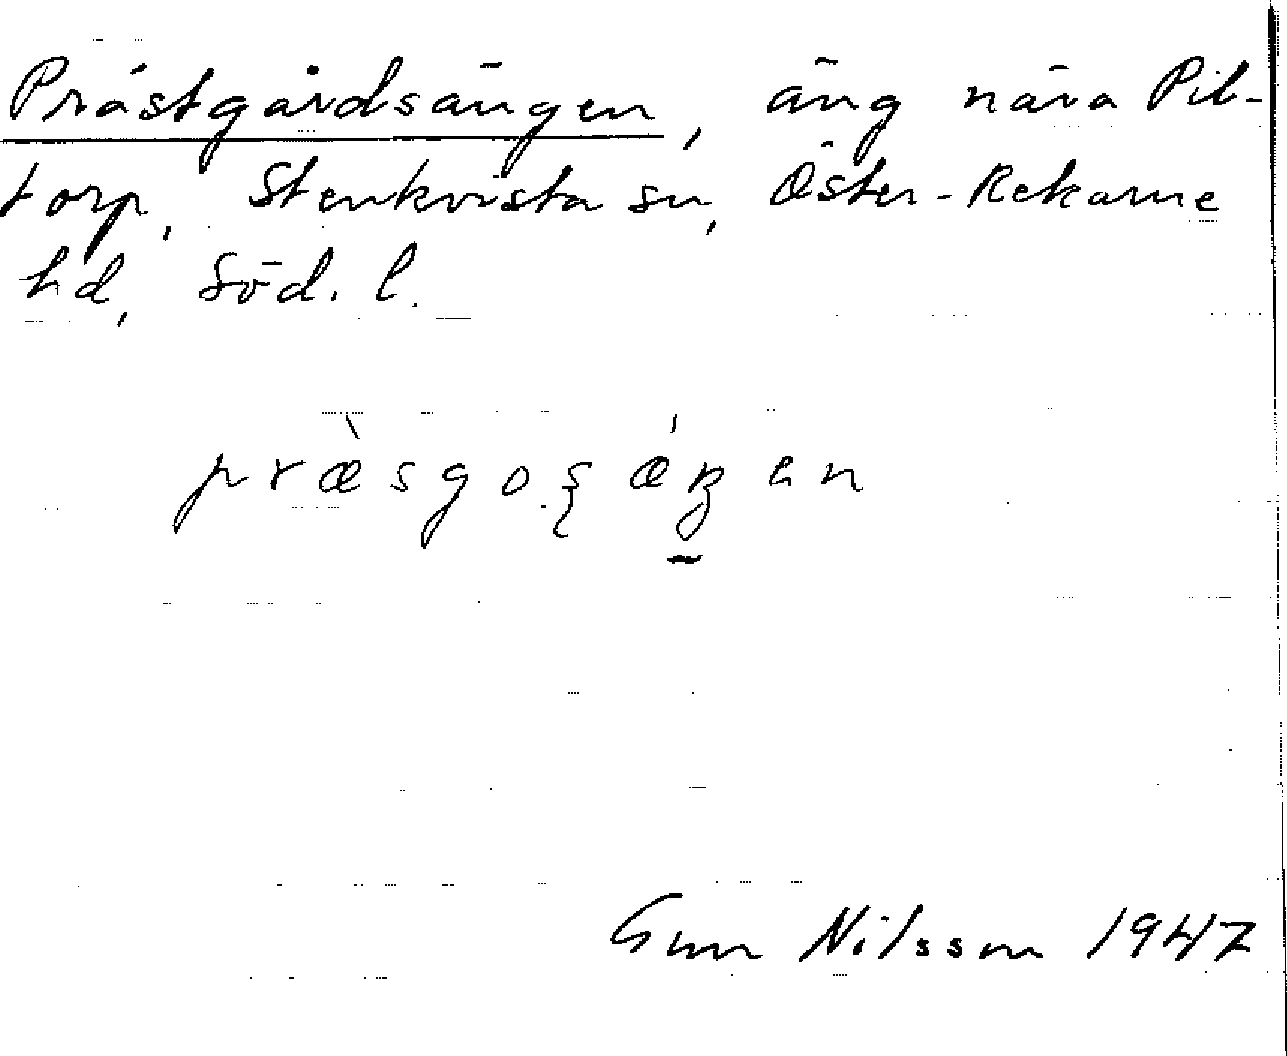 Prästgårdsängen, äng nära Pil-
torp, Stenkvista sn, Öster-Rekarne
hd, Söd. l.
præ̀sgoʂǽŋen
Gun Nilsson 1947